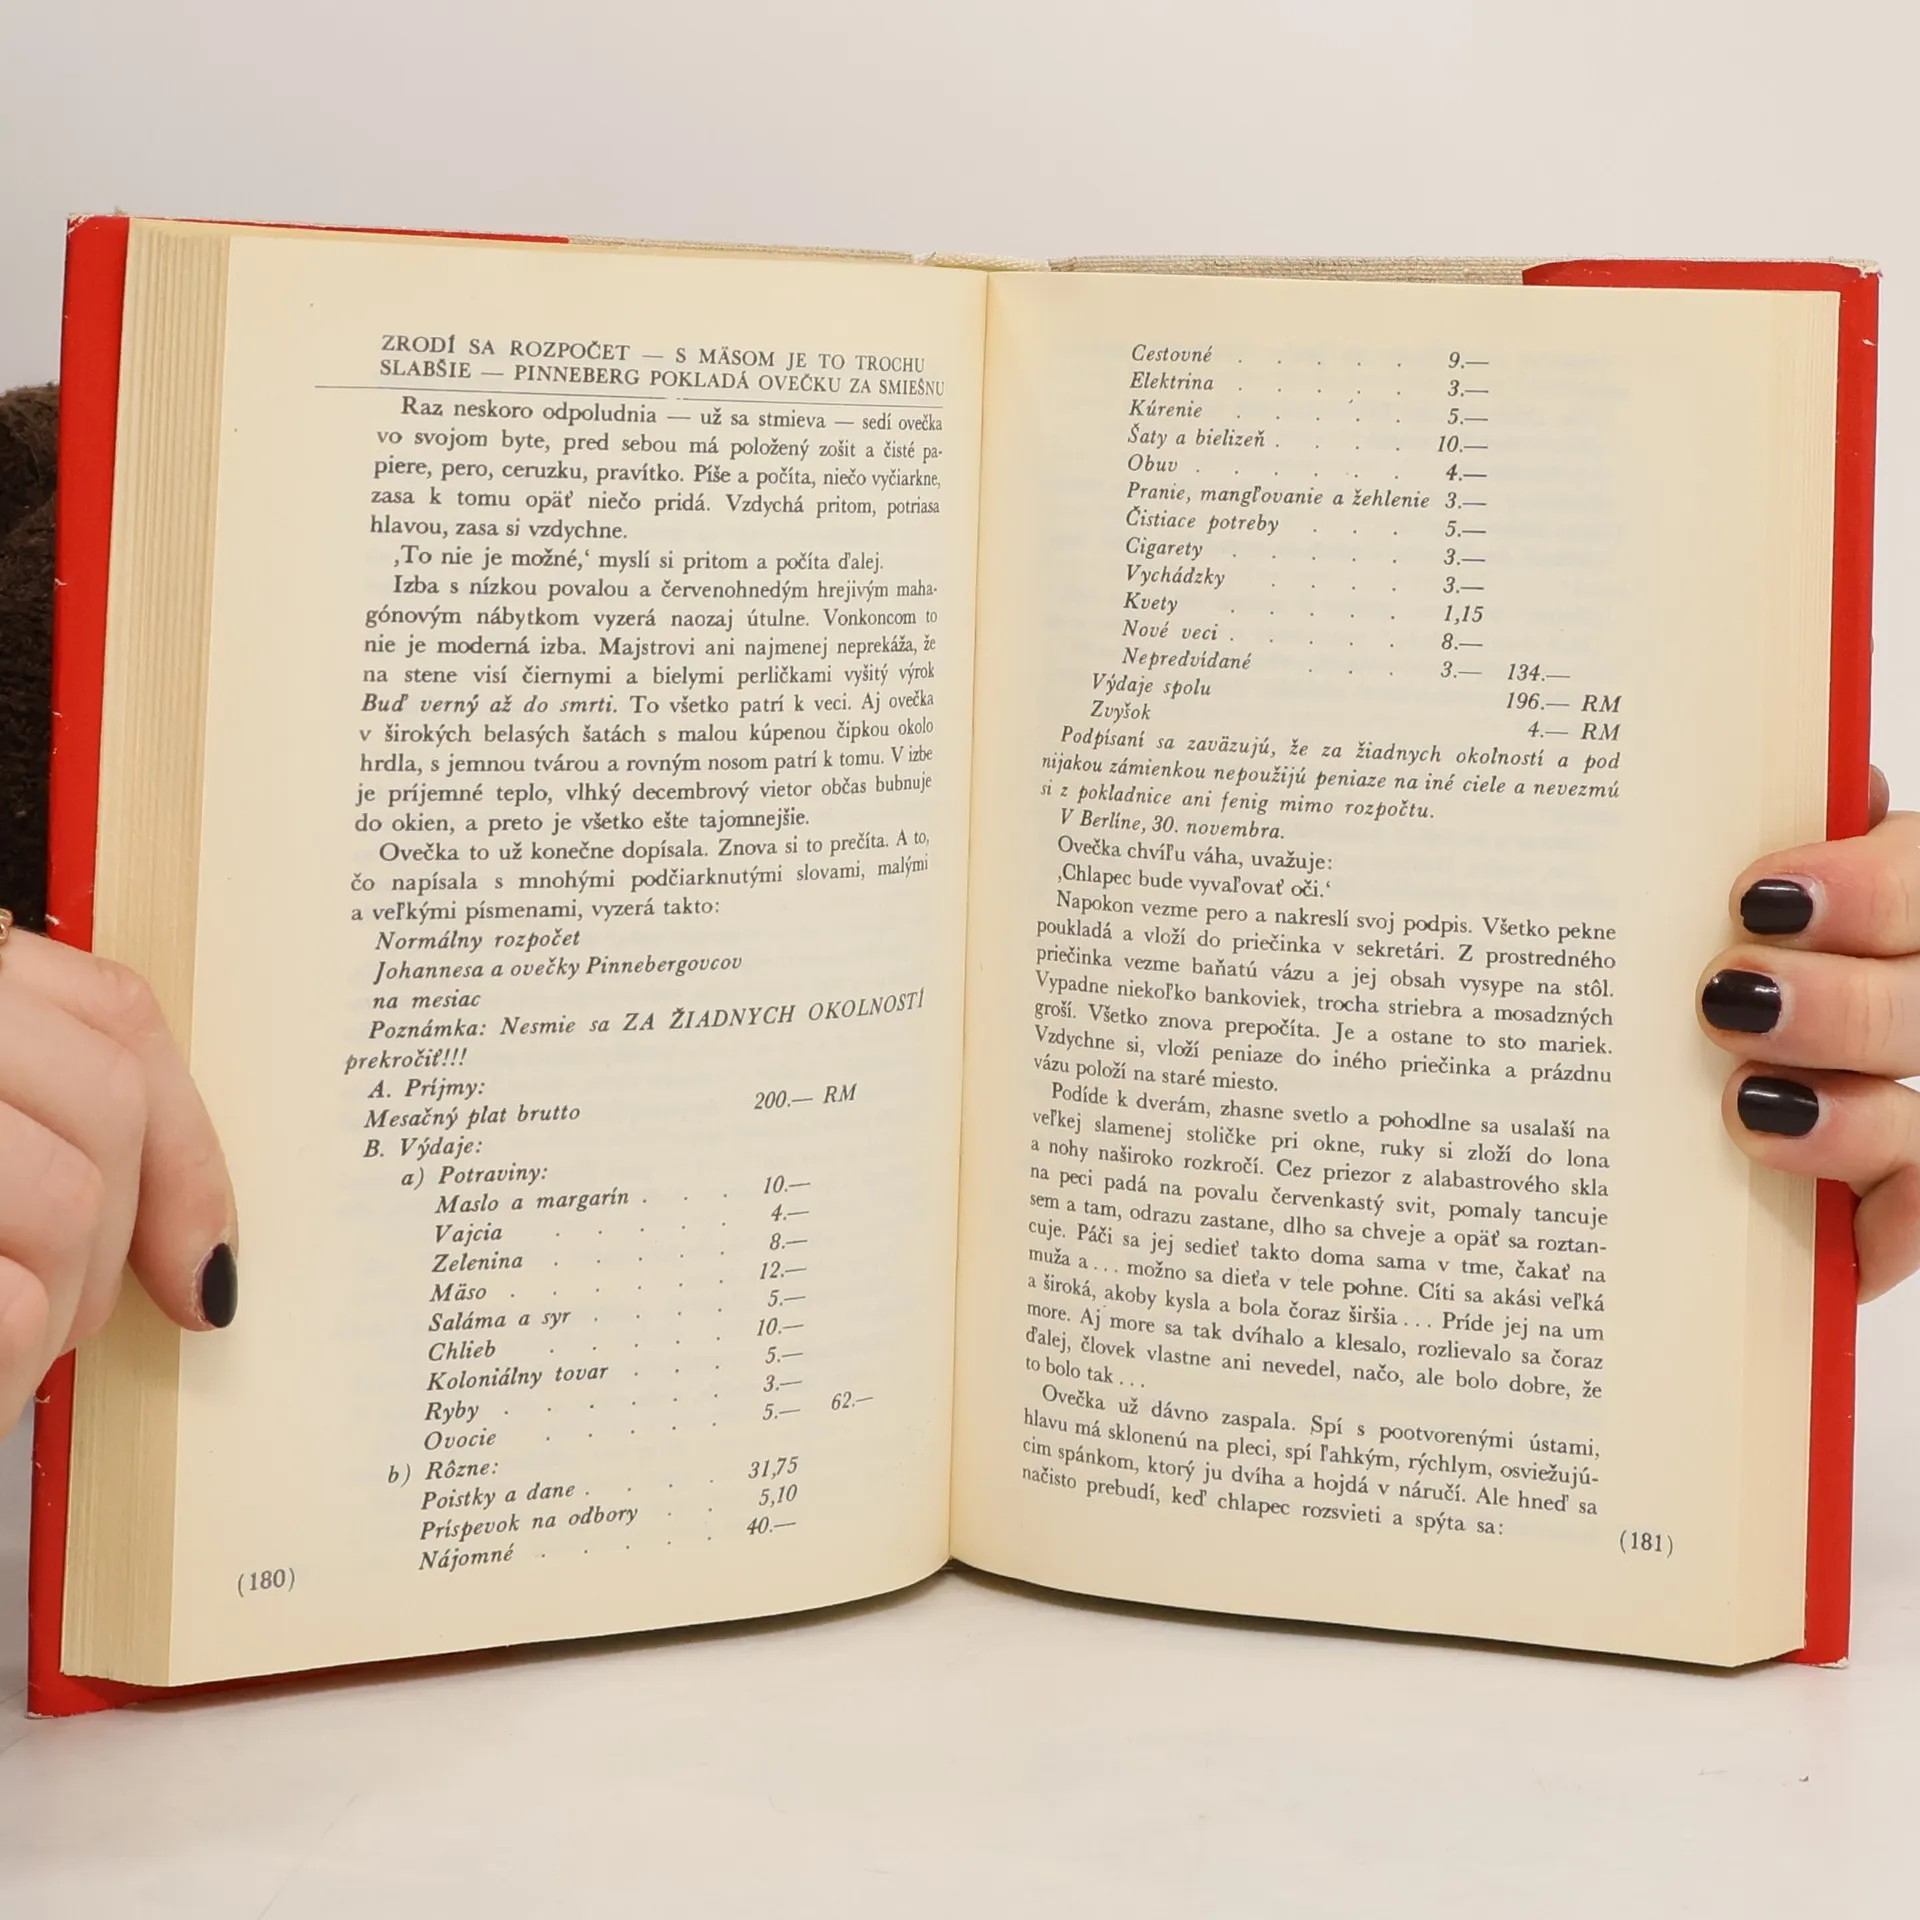 ZRODÍ SA ROZPOČET — S MÄSOM JE TO TROCHU
SLABŠIE — PINNEBERG POKLADÁ OVEČKU ZA SMIEŠNU
Raz neskoro odpoludnia — už sa stmieva — sedí ovečka
vo svojom byte, pred sebou má položený zošit a čisté pa-
piere, pero, ceruzku, pravítko. Píše a počíta, niečo vyčiarkne,
zasa k tomu opäť niečo pridá. Vzdychá pritom, potriasa
hlavou, zasa si vzdychne.
‚To nie je možné,‘ myslí si pritom a počíta ďalej.
Izba s nízkou povalou a červenohnedým hrejivým maha-
gónovým nábytkom vyzerá naozaj útulne. Vonkoncom to
nie je moderná izba. Majstrovi ani najmenej neprekáža, že
na stene visí čiernymi a bielymi perličkami vyšitý výrok
Buď verný až do smrti. To všetko patrí k veci. Aj ovečka
v širokých belasých šatách s malou kúpenou čipkou okolo
hrdla, s jemnou tvárou a rovným nosom patrí k tomu. V izbe
je príjemné teplo, vlhký decembrový vietor občas bubnuje
do okien, a preto je všetko ešte tajomnejšie.
Ovečka to už konečne dopísala. Znova si to prečíta. A to,
čo napísala s mnohými podčiarknutými slovami, malými
a veľkými písmenami, vyzerá takto:
Normálny rozpočet
Johannesa a ovečky Pinnebergovcov
na mesiac
Poznámka: Nesmie sa ZA ŽIADNYCH OKOLNOSTÍ
prekročiť!!!
A. Príjmy:
Mesačný plat brutto 200.— RM
B. Výdaje:
a) Potraviny:
Maslo a margarín . . . 10.—
Vajcia . . . . 4.—
Zelenina . . . . . 8.—
Mäso . . . . . . 12.—
Saláma a syr . . . . 5.—
Chlieb . . . . . 10.—
Koloniálny tovar . . . 5.—
Ryby . . . . . . 3.—
Ovocie . . . . . 5.— 62.—
b) Rôzne:
Poistky a dane . . . . 31,75
Príspevok na odbory . . 5,10
Nájomné . . . . . 40.—
(180)
Cestovné . . . . . 9.—
Elektrina . . . . . 3.—
Kúrenie . . . . . 5.—
Šaty a bielizeň . . . . 10.—
Obuv . . . . . . 4.—
Pranie, mangľovanie a žehlenie 3.—
Čistiace potreby . . . 5.—
Cigarety . . . . . 3.—
Vychádzky . . . . 3.—
Kvety . . . . . 1,15
Nové veci . . . . . 8.—
Nepredvídané . . . 3.— 134.—
Výdaje spolu 196.— RM
Zvyšok 4.— RM
Podpísaní sa zaväzujú, že za žiadnych okolností a pod
nijakou zámienkou nepoužijú peniaze na iné ciele a nevezmú
si z pokladnice ani fenig mimo rozpočtu.
V Berlíne, 30. novembra.
Ovečka chvíľu váha, uvažuje:
‚Chlapec bude vyvaľovať oči.‘
Napokon vezme pero a nakreslí svoj podpis. Všetko pekne
poukladá a vloží do priečinka v sekretári. Z prostredného
priečinka vezme baňatú vázu a jej obsah vysype na stôl.
Vypadne niekoľko bankoviek, trocha striebra a mosadzných
groší. Všetko znova prepočíta. Je a ostane to sto mariek.
Vzdychne si, vloží peniaze do iného priečinka a prázdnu
vázu položí na staré miesto.
Podíde k dverám, zhasne svetlo a pohodlne sa usalaší na
veľkej slamenej stoličke pri okne, ruky si zloží do lona
a nohy naširoko rozkročí. Cez priezor z alabastrového skla
na peci padá na povalu červenkastý svit, pomaly tancuje
sem a tam, odrazu zastane, dlho sa chveje a opäť sa roztan-
cuje. Páči sa jej sedieť takto doma sama v tme, čakať na
muža a... možno sa dieťa v tele pohne. Cíti sa akási veľká
a široká, akoby kysla a bola čoraz širšia... Príde jej na um
more. Aj more sa tak dvíhalo a klesalo, rozlievalo sa čoraz
ďalej, človek vlastne ani nevedel, načo, ale bolo dobre, že
to bolo tak...
Ovečka už dávno zaspala. Spí s pootvorenými ústami,
hlavu má sklonenú na pleci, spí ľahkým, rýchlym, osviežujú-
cim spánkom, ktorý ju dvíha a hojdá v náručí. Ale hneď sa
načisto prebudí, keď chlapec rozsvieti a spýta sa:
(181)